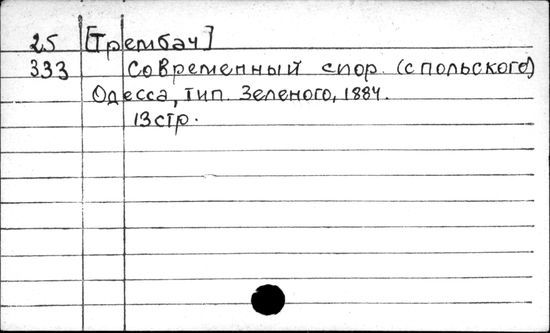 25 [Трембач]
333 Современный спор. (с польского)
Одесса, тип. Зеленого, 1884.
13 стр.